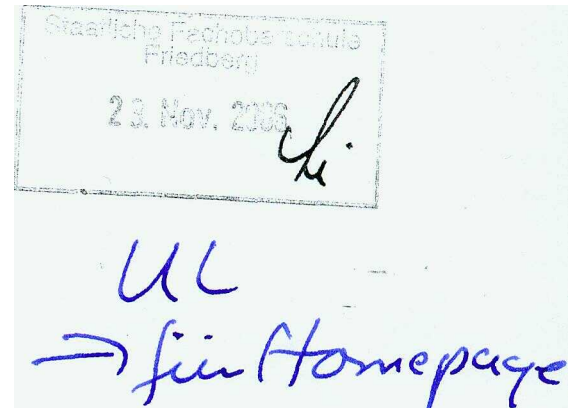 Staatliche Fachoberschule
Friedberg
23. Nov. 2006
UL
→ für Homepage